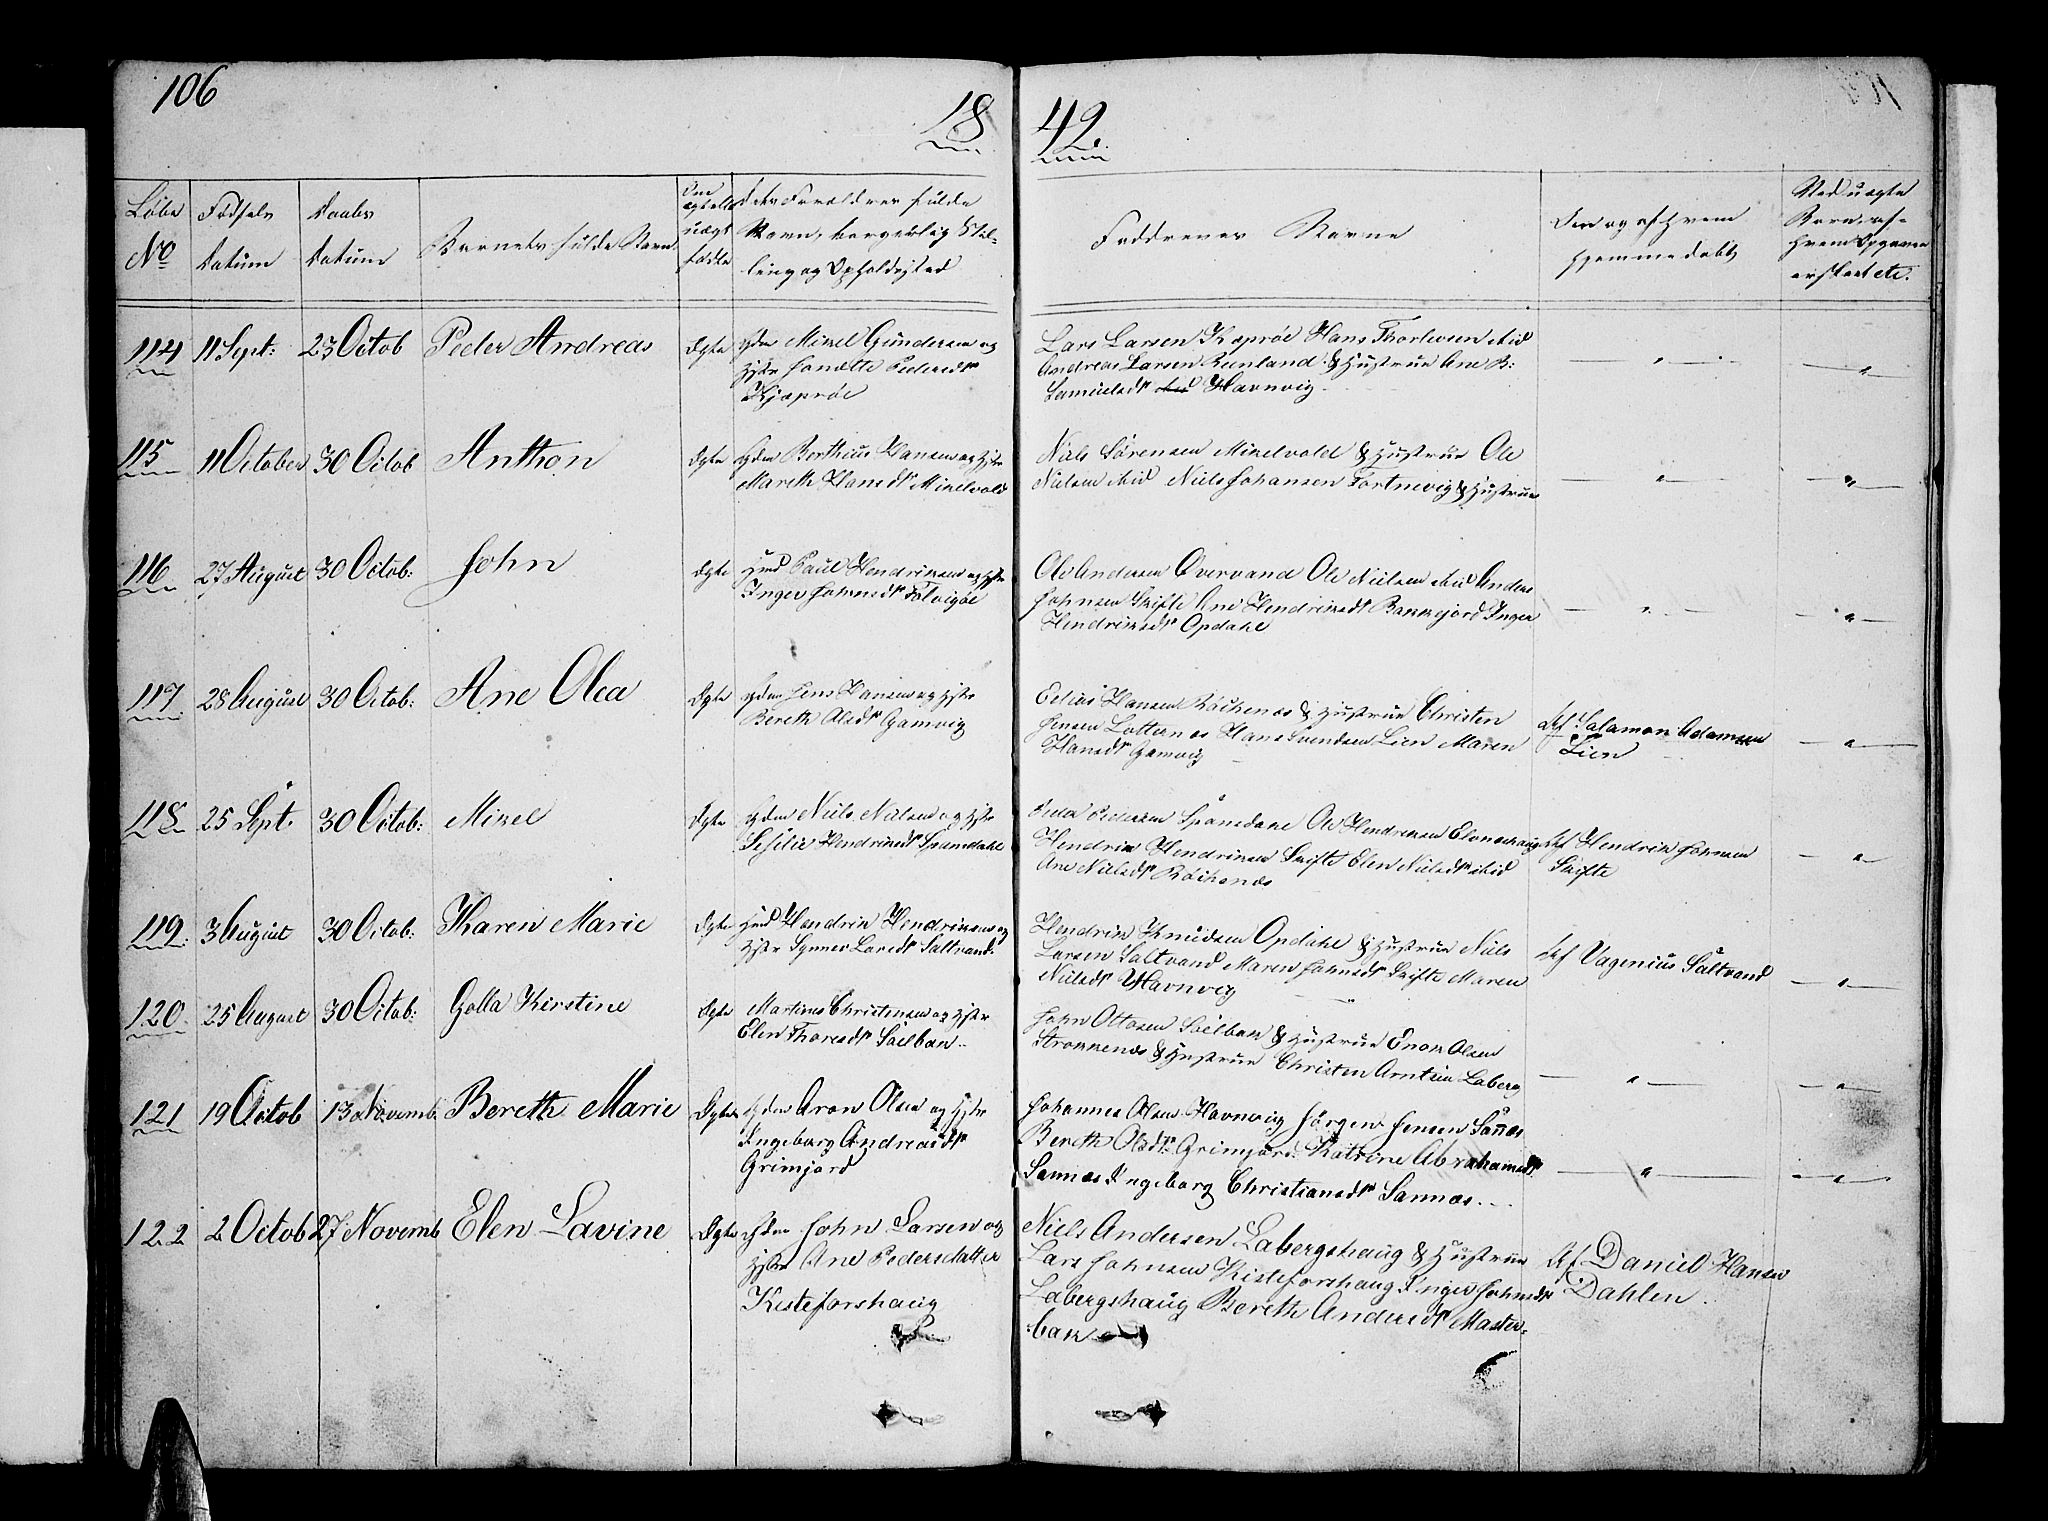 106
18
42.
Løbe
No
Fødsels
Datum
Daabs
Datum
Barnets fulde Navn
Om
ægte eller
uægte
fødte
Forældres fulde
Navn, borgerlig Stil-
ling og Opholdssted
Faddrenes Navne
og af hvem
hjemmedøbt
Ved uægte
Børn, af
hvem Opgaven
etc.
114 11 Sept: 23 Octob Peder Andreas Ægte Mikel Gundersen og
Hstr Janette Pedersdtr
Kjæprøe
Lars Larsen Kjeprøe Hans Thorlevsen ibid
Andreas Larsen Renland & Hustrue Ane B:
Samuelsdtr Havnvig
115 11 October 30 Octob Anthon Ægte Bertheus Hansen og Hstr
Mareth Hansdtr Mikelvold
Niels Sørensen Mikelvold & Hustrue Ole
Nielsen ibid Niels Johansen Fortnevig & Hustrue
116 27 August 30 Octob: John Ægte Hmd Paul Hendriksen og Hstr
Inger Johnsdtr
Ole Andersen Overvand Ole Nielsen ibid Anders
Johnsen Skifte Ane Hendriksdtr Bakkejord Inger
Hendriksdtr Opdahl
117 28 August 30 Octob: Ane Olea Ægte Jens Hansen og Hstr
Bereth Olsdtr Gamvig
Elias Hansen Røikenes & Hustrue Christen
Jensen Lotternes Hans Svendsen Lien Maren
Hansdtr Gamvig
Af Salamon Adamsen
Lien
118 25 Sept. 30 Octob: Mikel Ægte Niels Nielsen og Hstr
Sesilie Hendriksdtr Spansdahl
Peder Pedersen Spansdahl Ole Hendriksen
Hendrik Hendriksen Skifte Elen Nielsdtr ibid
Ane Nielsdtr Røikenes
Af Hendrik Johnsen
Skifte
119 3 August 30 Octob: Karen Marie Ægte Hmd Hendrik Hendriksen og
Hstr Synnev Larsdtr Saltvand
Hendrik Knudsen Opdahl & Hustrue Niels
Larsen Saltvand Maren Johnsdtr Skifte Maren
Nielsdtr Havnvig
Af Vagenius Saltvand
120 25 August 30 Octob: Golla Kirstine Ægte Martinus Christensen og Hstr
Elen Thoresdtr Søilbak
John Ottosen Søilbak & Hustrue Enok Olsen
Strokkenes & Hustrue Christen Arntsen Laberg
121 19 Octob 13 Novemb. Bereth Marie Ægte Aron Olsen og Hstr
Ingeborg Andreasdtr
Grimjord
Johannes Olsen Havnvig Jørgen Jensen Sannes
Bereth Olsdtr: Grimjord: Katrine Abrahamsdtr
Sannes Ingeborg Christiansdtr Sannes
122 2 Octob 27 Novemb Elen Lavine Ægte John Larsen og
Hstr Ane Pedersdatter
Kisteforshaug
Niels Andersen Labergshaug & Hustrue
Lars Johnsen Kisteforshaug Inger Johnsdtr
Labergshaug Bereth Andersdtr Mester-
bak
Af Daniel Hansen
Dahlen